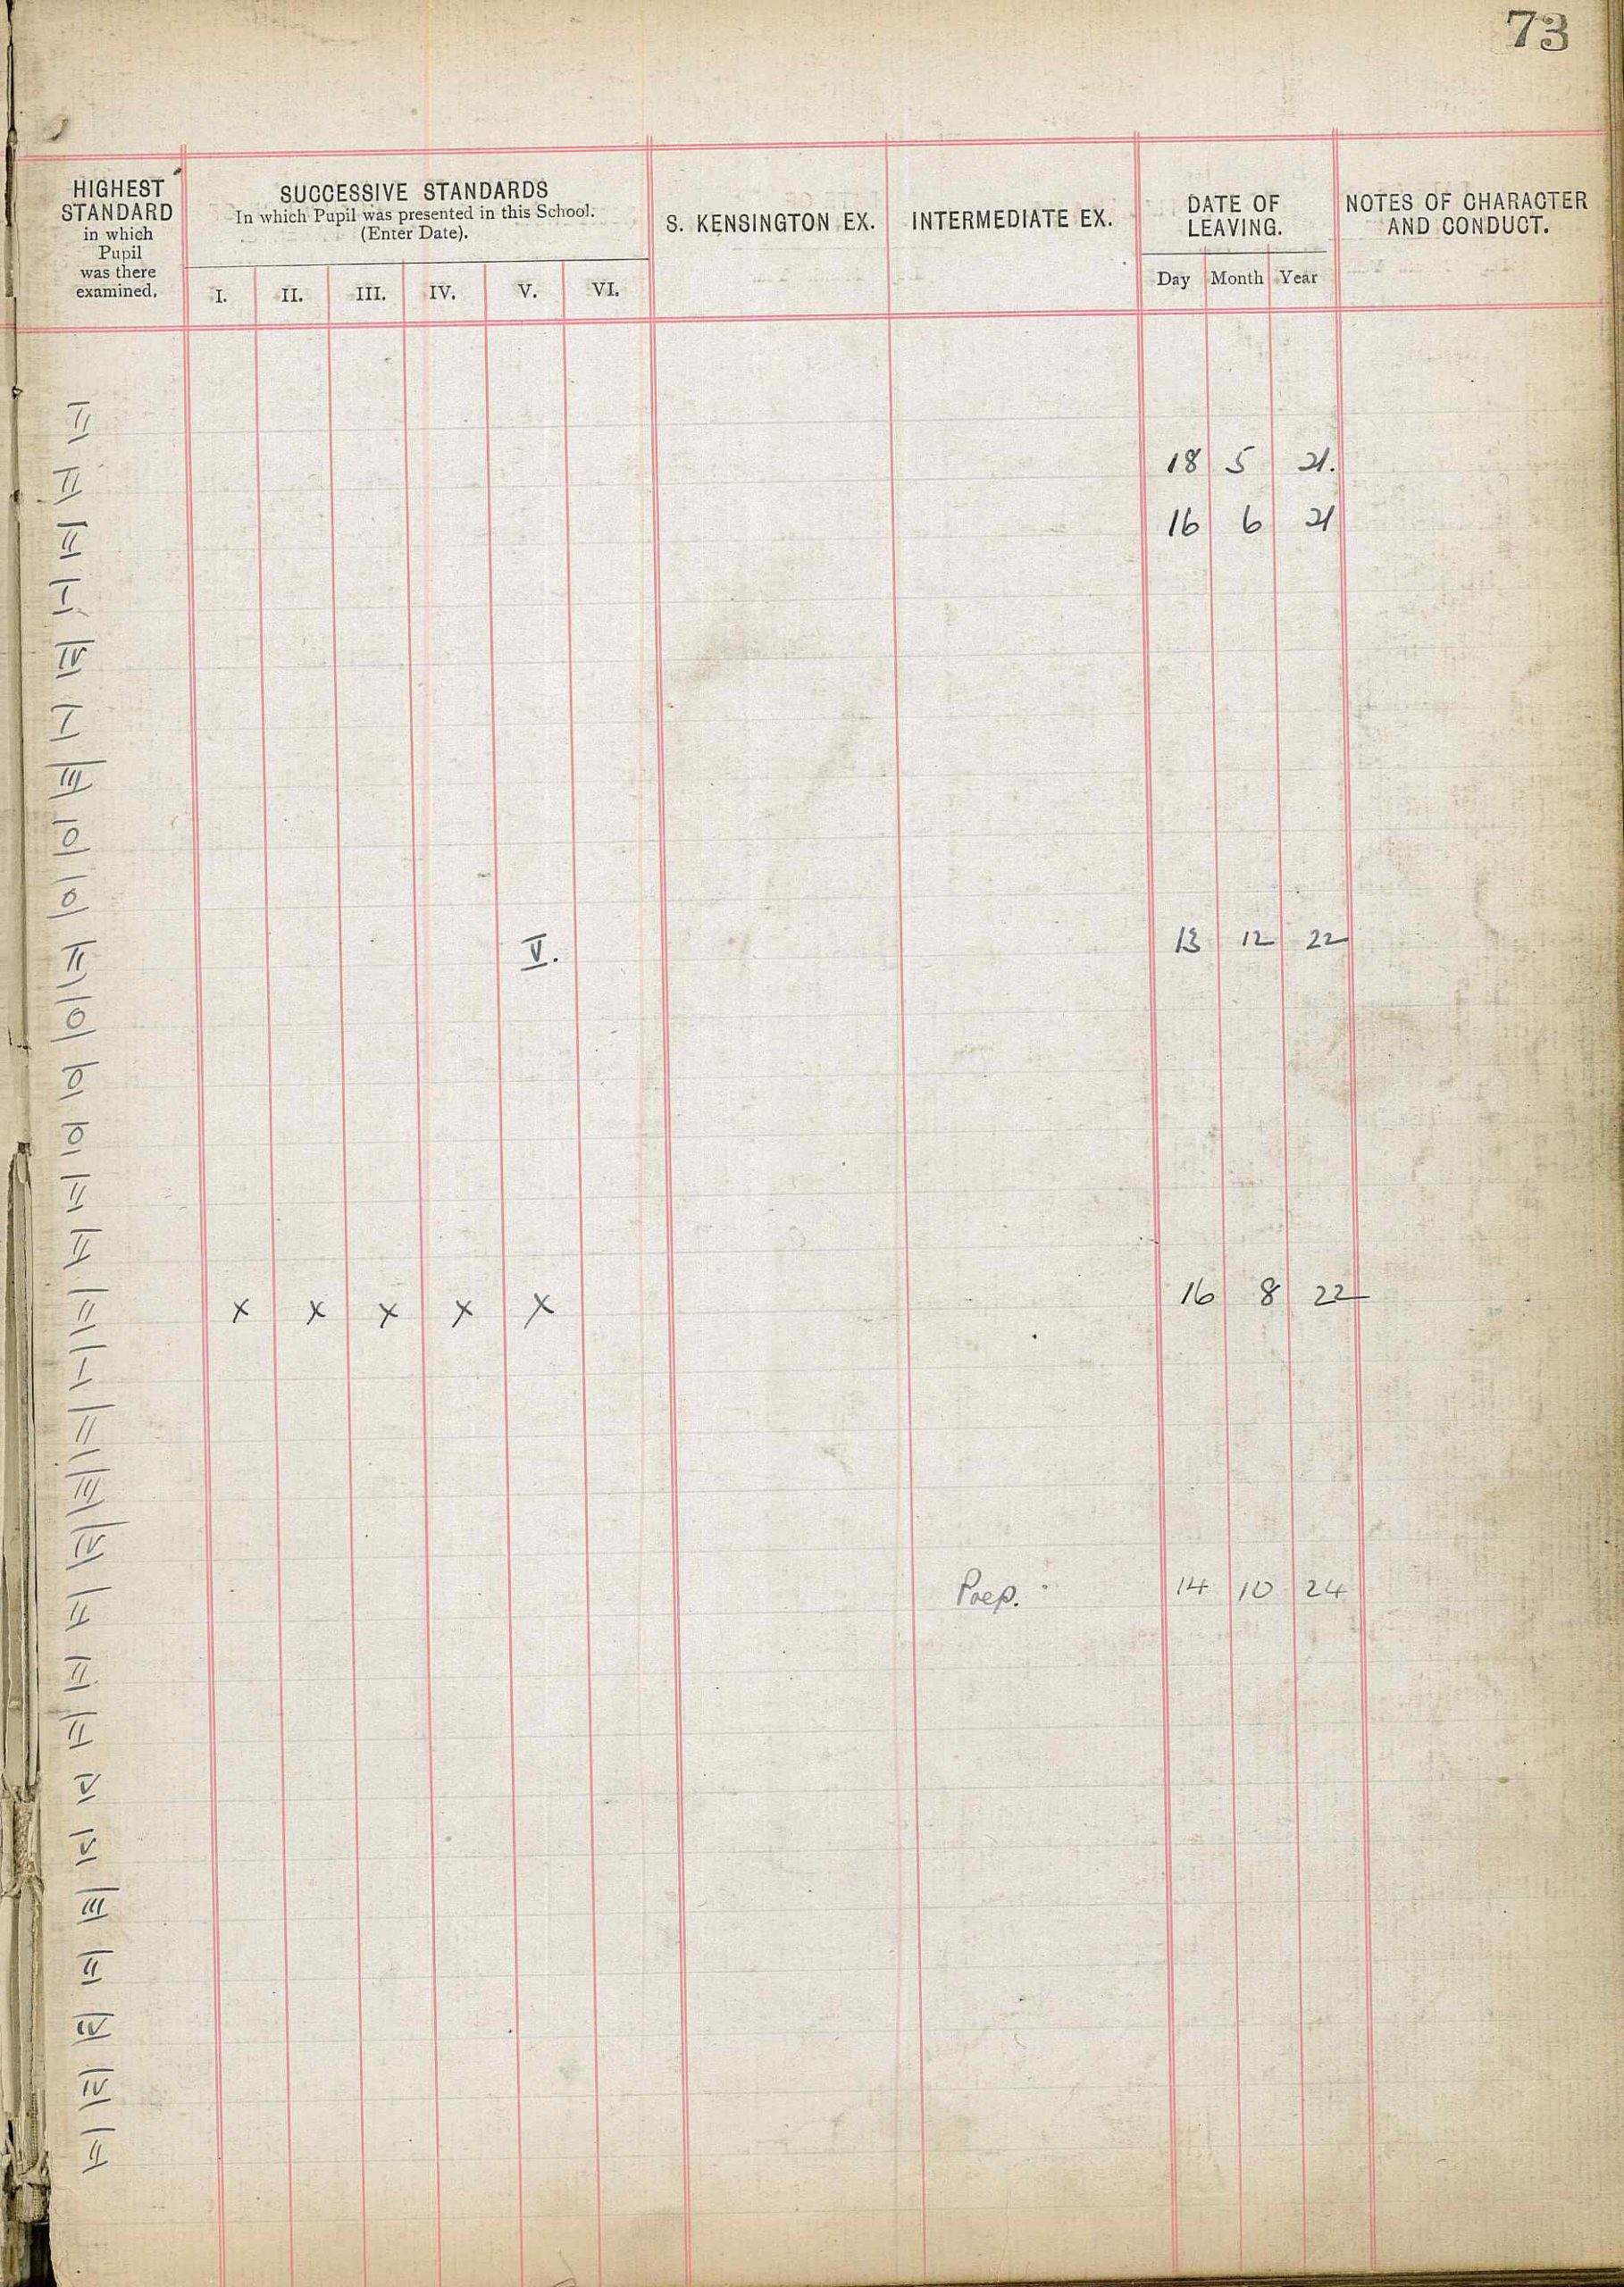 73
HIGHEST STANDARD in which Pupil was there examined.
SUCCESSIVE STANDARDS
In which Pupil was presented in this School.
(Enter Date).
I. II. III. IV. V. VI.
S. KENSINGTON EX.
INTERMEDIATE EX.
DATE OF LEAVING.
Day Month Year
NOTES OF CHARACTER AND CONDUCT.
II
II 18 5 21.
II 16 6 21
I
IV
I
III
0
0
II V. 13 12 22
0
0
0
II
II
II x x x x x 16 8 22
I
II
III
IV
II Prep. 14 10 24
II
II
V
V
III
II
IV
IV
II